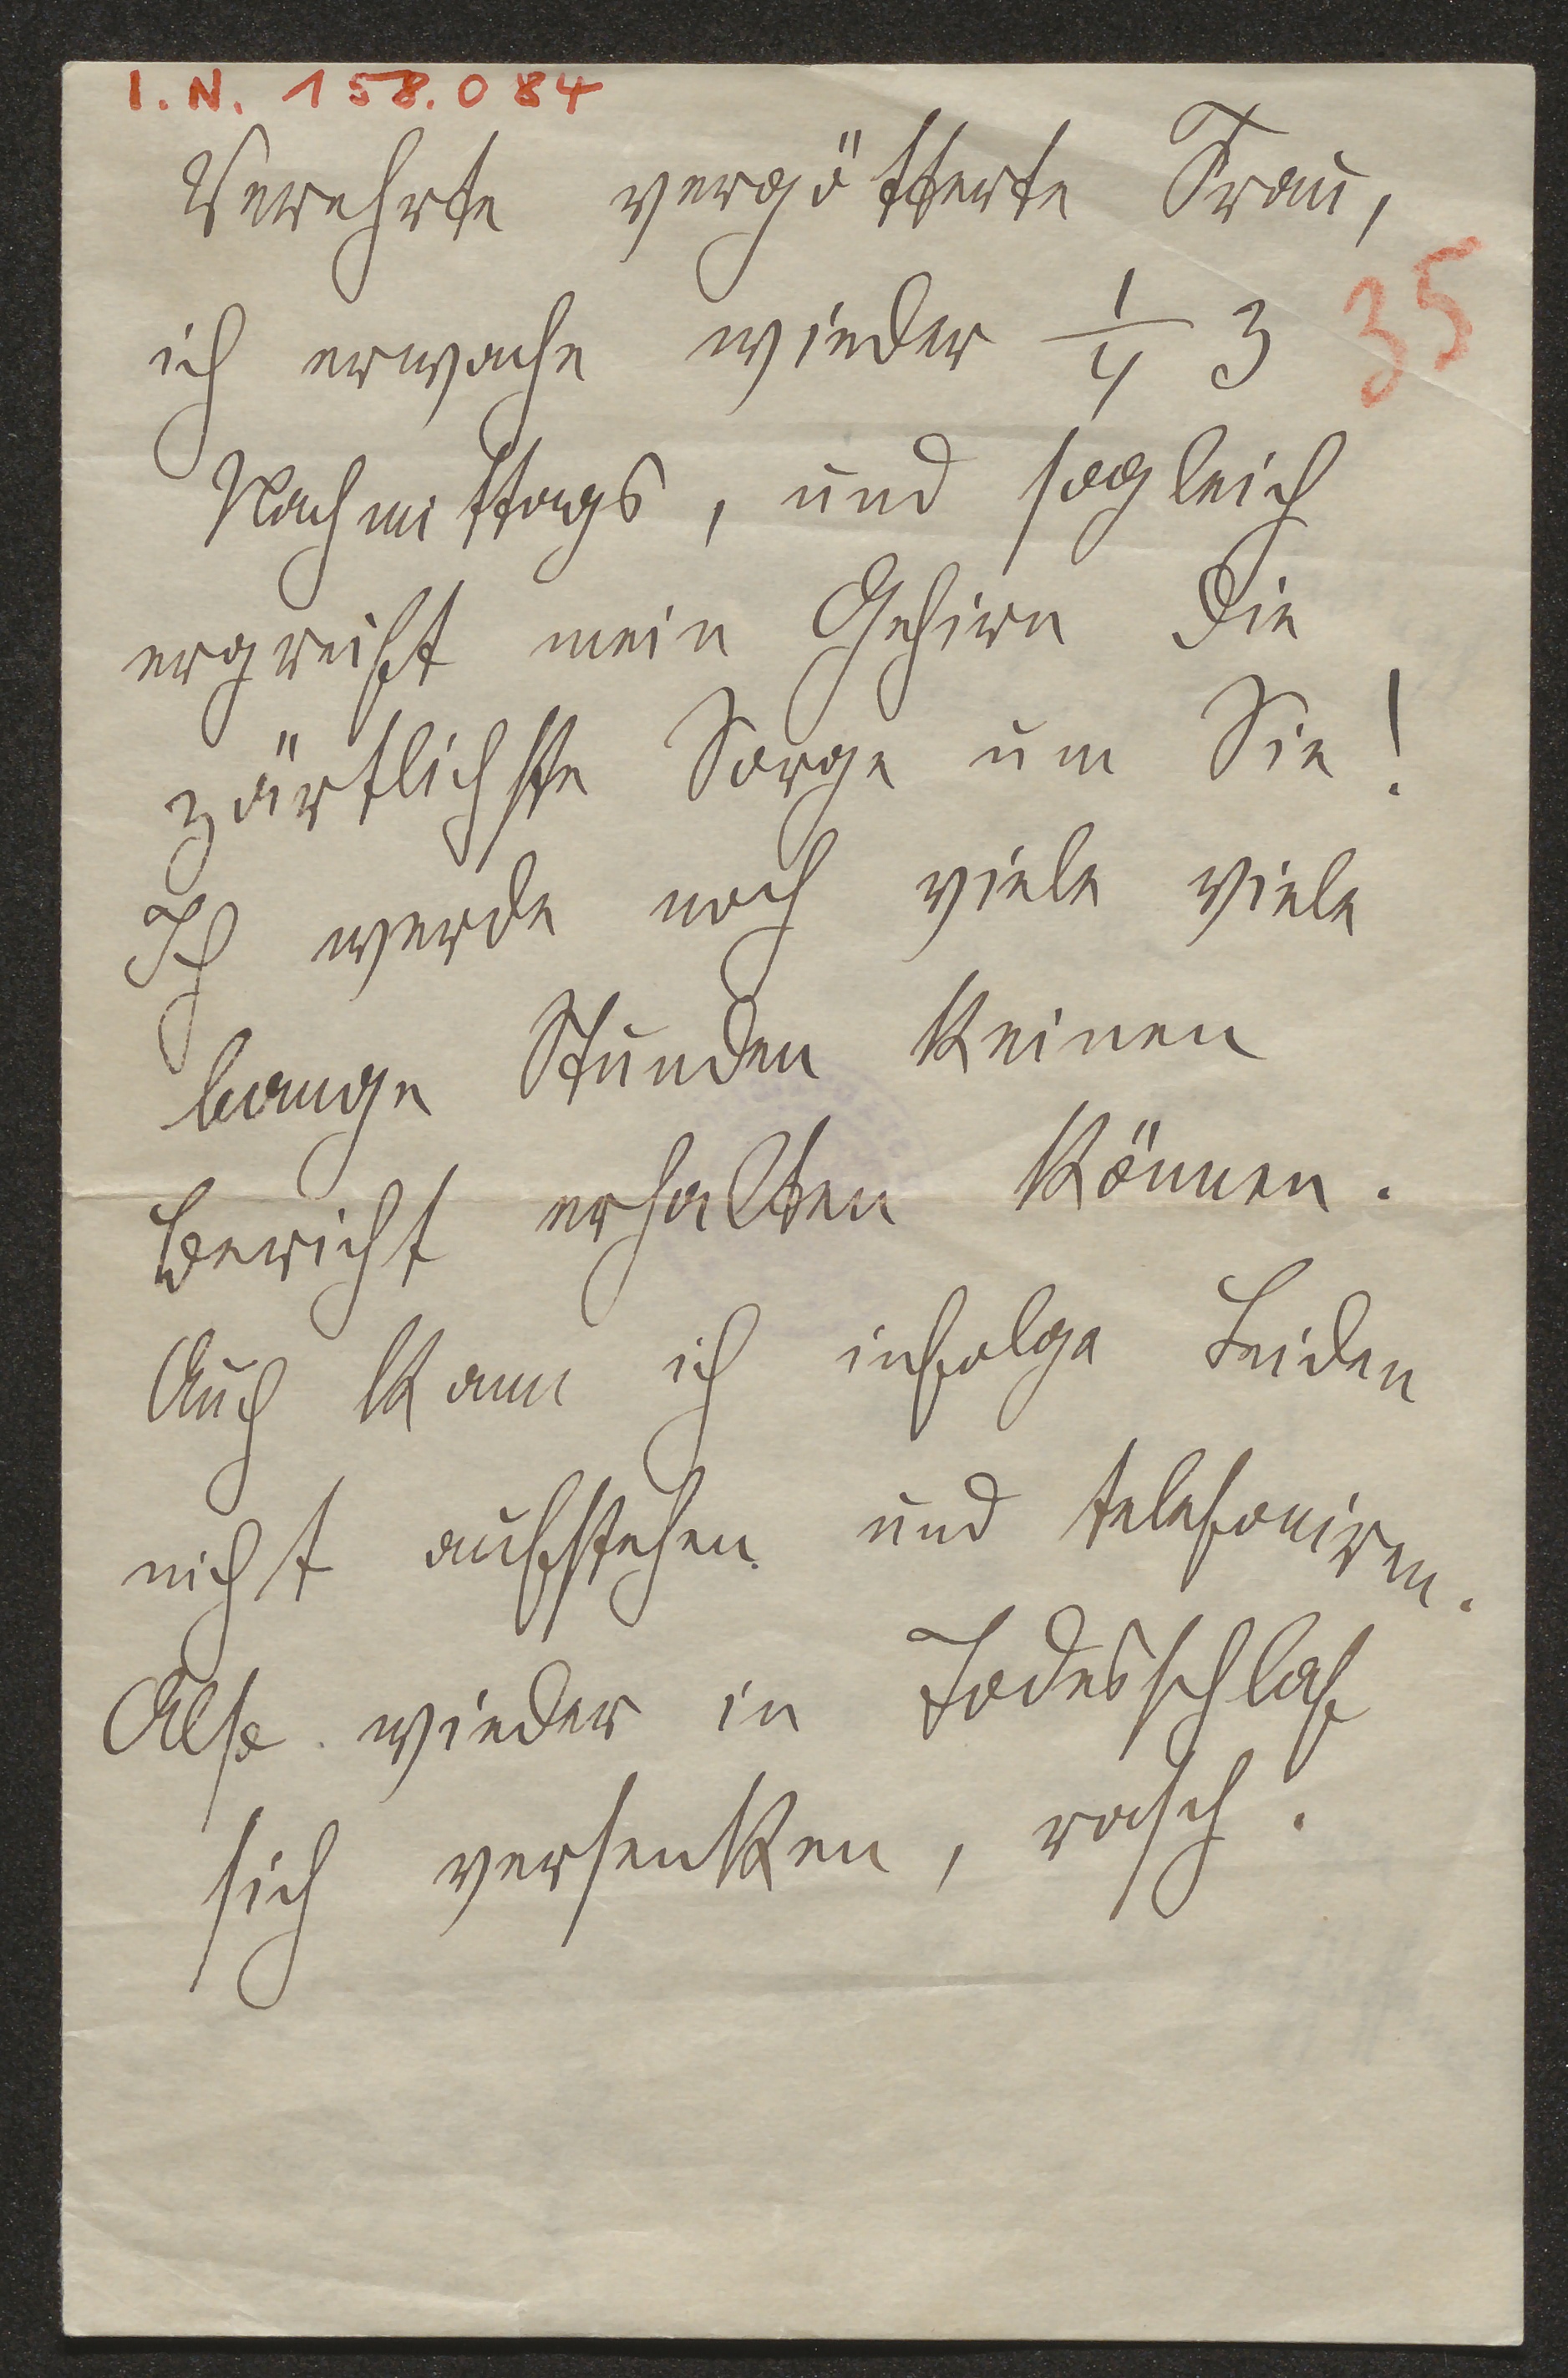 I.N. 158.084
Verehrte vergötterte Frau,
ich erwache wieder 1/4 3
35
Nachmittags, und sogleich
ergreift mein Gehirn die
zärtlichste Sorge um Sie!
Ich werde noch viele viele
bange Stunden keinen
Bericht erhalten können.
Auch kann ich infolge Leiden
nicht aufstehen und telefoniren.
Also wieder in Todesschlaf
sich versenken, rasch.